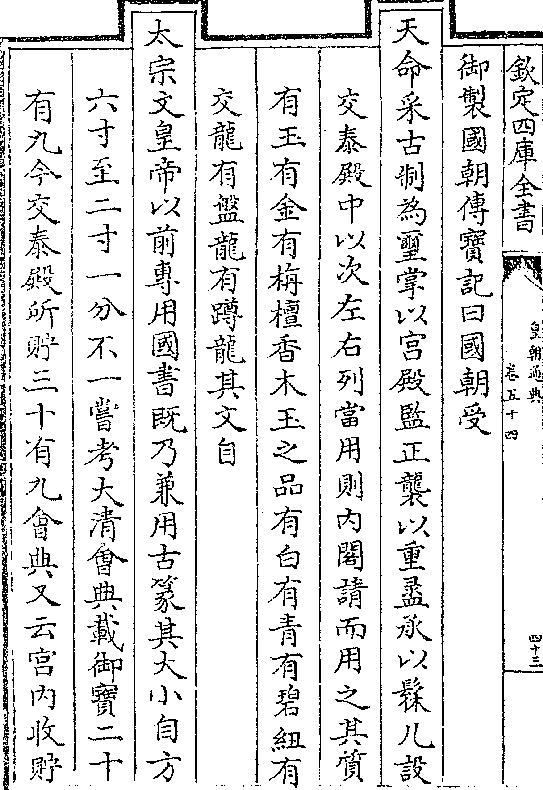 欽定四庫全書
皇朝通典
卷五十四
四十三
御製國朝傳寶記曰國朝受
天命采古制為璽掌以宫殿監正襲以重盝承以髹几設
交泰殿中以次左右列當用則内閣請而用之其質
有玉有金有栴檀香木玉之品有白有青有碧紐有
交龍有盤龍有蹲龍其文自
太宗文皇帝以前專用國書既乃兼用古篆其大小自方
六寸至二寸一分不一嘗考大清會典載御寶二十
有九今交泰殿所貯三十有九會典又云宫内收貯